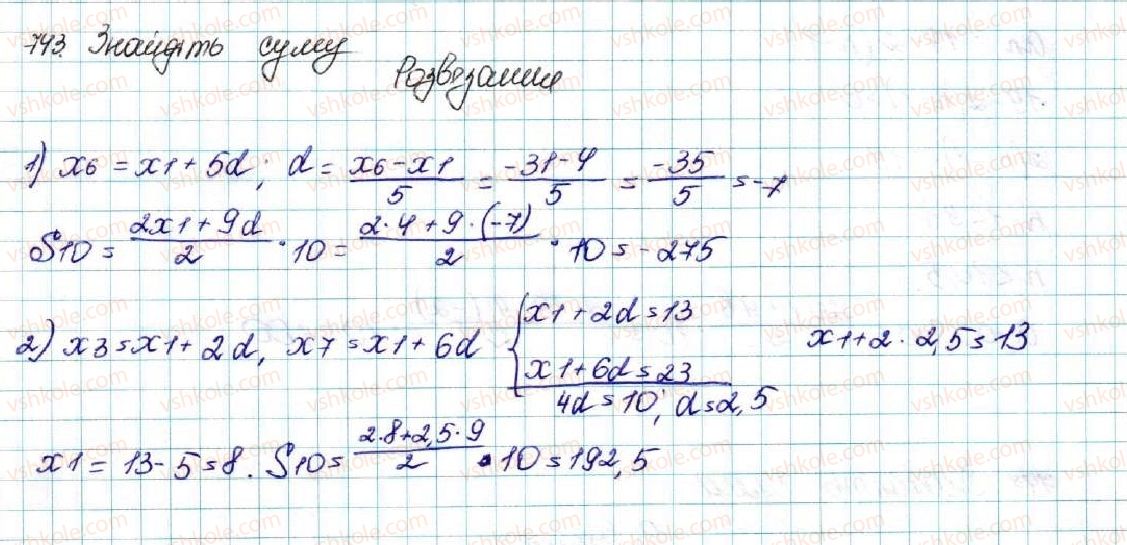 743. Знайдіть суму
Розвязання
1) x6 = x1 + 5d; d = (x6 - x1)/5 = (-31 - 4)/5 = -35/5 = -7
S10 = (2x1 + 9d)/2 · 10 = (2·4 + 9·(-7))/2 · 10 = -275
2) x3 = x1 + 2d, x7 = x1 + 6d { x1 + 2d = 13 x1 + 2 · 2,5 = 13
x1 + 6d = 23
4d = 10; d = 2,5
x1 = 13 - 5 = 8. S10 = (2·8 + 2,5·9)/2 · 10 = 192,5